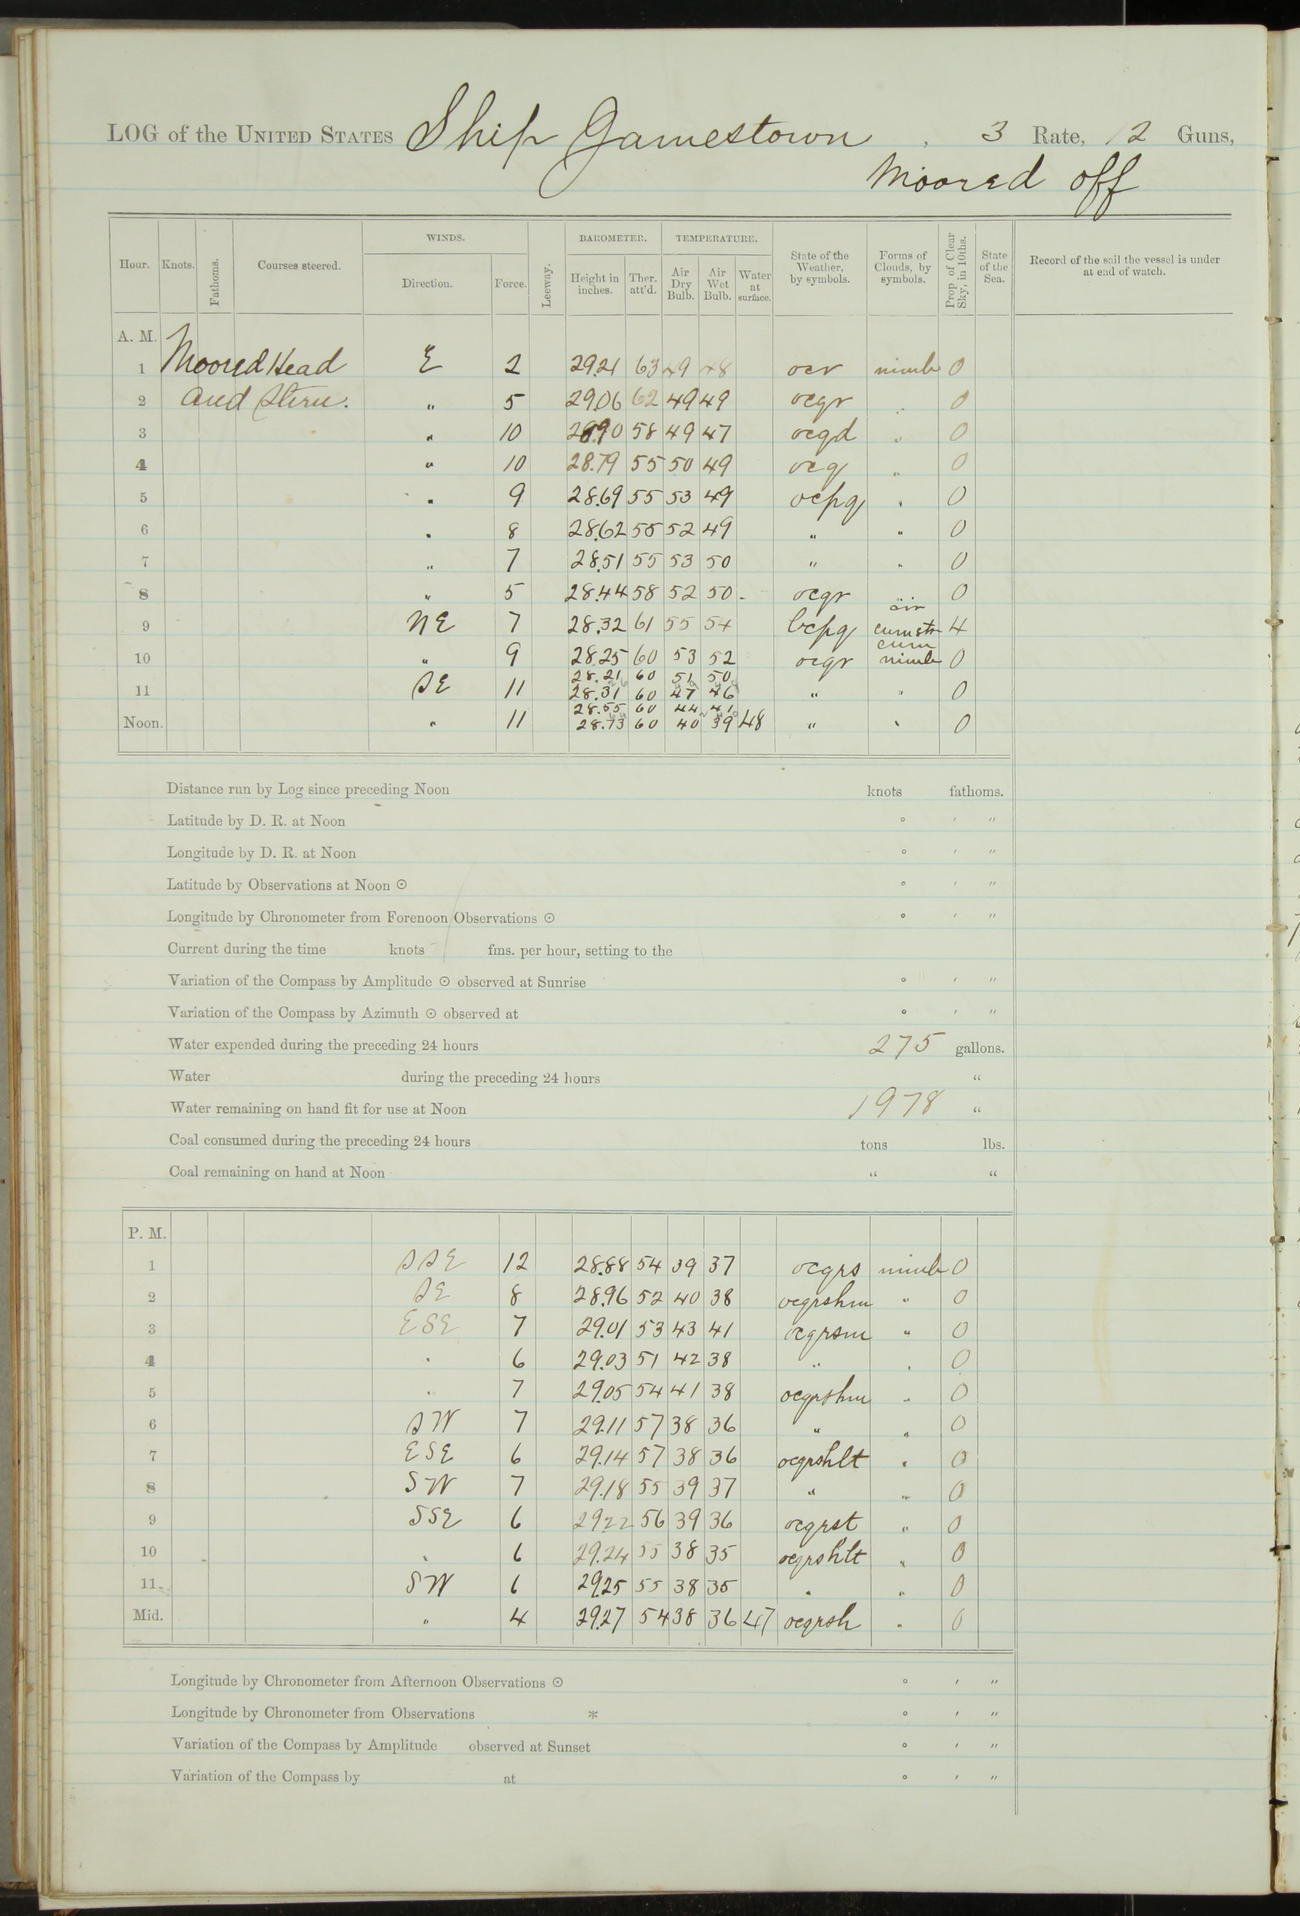 LOG of the UNITED STATES Ship Jamestown , 3 Rate, 12 Guns,
Moored off
Hour. Knots. Fathoms. Courses steered. WINDS. Direction. Force. Leeway. BAROMETER. Height in inches. Ther. att'd. TEMPERATURE. Air Dry Bulb. Air Wet Bulb. Water at surface. State of the Weather, by symbols. Forms of Clouds, by symbols. Prop. of Clear Sky, in 10ths. State of the Sea. Record of the sail the vessel is under at end of watch.
A. M.
1 Moored Head E 2 29.21 63 49 48 ocr nimb 0
2 and Stern. " 5 29.06 62 49 49 ocqr " 0
3 " 10 28.90 58 49 47 ocqd " 0
4 " 10 28.79 55 50 49 ocq " 0
5 " 9 28.69 55 53 49 ocpq " 0
6 " 8 28.62 55 52 49 " " 0
7 " 7 28.51 55 53 50 " " 0
8 " 5 28.44 58 52 50 ocqr " 0
9 NE 7 28.32 61 55 54 bcpq cir cumstr 4
10 " 9 28.25 60 53 52 ocqr cum nimb 0
28.21 60 51 50
11 SE 11 28.31 60 47 46 " " 0
28.55 60 44 41
Noon. " 11 28.73 60 40 39 48 " " 0
Distance run by Log since preceding Noon knots fathoms.
Latitude by D. R. at Noon ° ′ ″
Longitude by D. R. at Noon ° ′ ″
Latitude by Observations at Noon ⊙ ° ′ ″
Longitude by Chronometer from Forenoon Observations ⊙ ° ′ ″
Current during the time knots fms. per hour, setting to the
Variation of the Compass by Amplitude ⊙ observed at Sunrise ° ′ ″
Variation of the Compass by Azimuth ⊙ observed at ° ′ ″
Water expended during the preceding 24 hours 275 gallons.
Water during the preceding 24 hours "
Water remaining on hand fit for use at Noon 1978 "
Coal consumed during the preceding 24 hours tons lbs.
Coal remaining on hand at Noon " "
P. M.
1 SSE 12 28.88 54 39 37 ocqrs nimb 0
2 SE 8 28.96 52 40 38 ocqrshm " 0
3 ESE 7 29.01 53 43 41 ocqrsm " 0
4 " 6 29.03 51 42 38 " " 0
5 " 7 29.05 54 41 38 ocqrshm " 0
6 SW 7 29.11 57 38 36 " " 0
7 ESE 6 29.14 57 38 36 ocqrshlt " 0
8 SW 7 29.18 55 39 37 " " 0
9 SSE 6 29.22 56 39 36 ocqrst " 0
10 " 6 29.24 55 38 35 ocqrshlt " 0
11 SW 6 29.25 55 38 35 " " 0
Mid. " 4 29.27 54 38 36 47 ocqrsh " 0
Longitude by Chronometer from Afternoon Observations ⊙ ° ′ ″
Longitude by Chronometer from Observations * ° ′ ″
Variation of the Compass by Amplitude observed at Sunset ° ′ ″
Variation of the Compass by at ° ′ ″